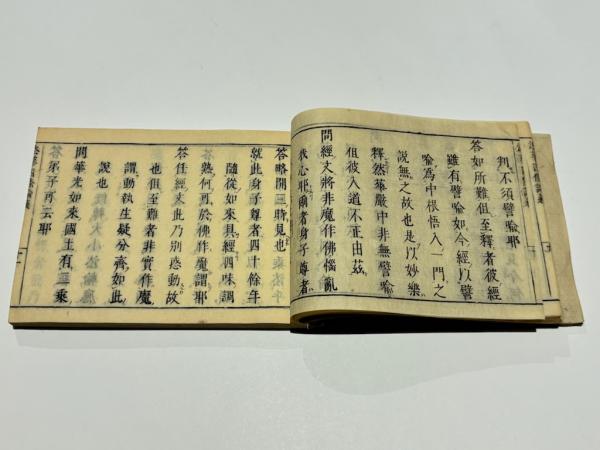 判不須譬喩耶
答如所難但至釋者彼經
雖有譬喩如今經以譬
喩爲中根悟入一門之
說無之故也是以妙樂
釋然華嚴中非無譬喩
但彼入道不正由茲
問經文將非魔作佛惱亂
我心耶爾者身子尊者
答略開三時見也
就此身子尊者四十餘年
隨從如來具經四味調
熟何再於佛作魔謂耶
答任經文此乃別惑動故
也但至難者非實作魔
謂動執生疑分齊如此
說也
問華光如來國土有三乘
答弟子可云耶